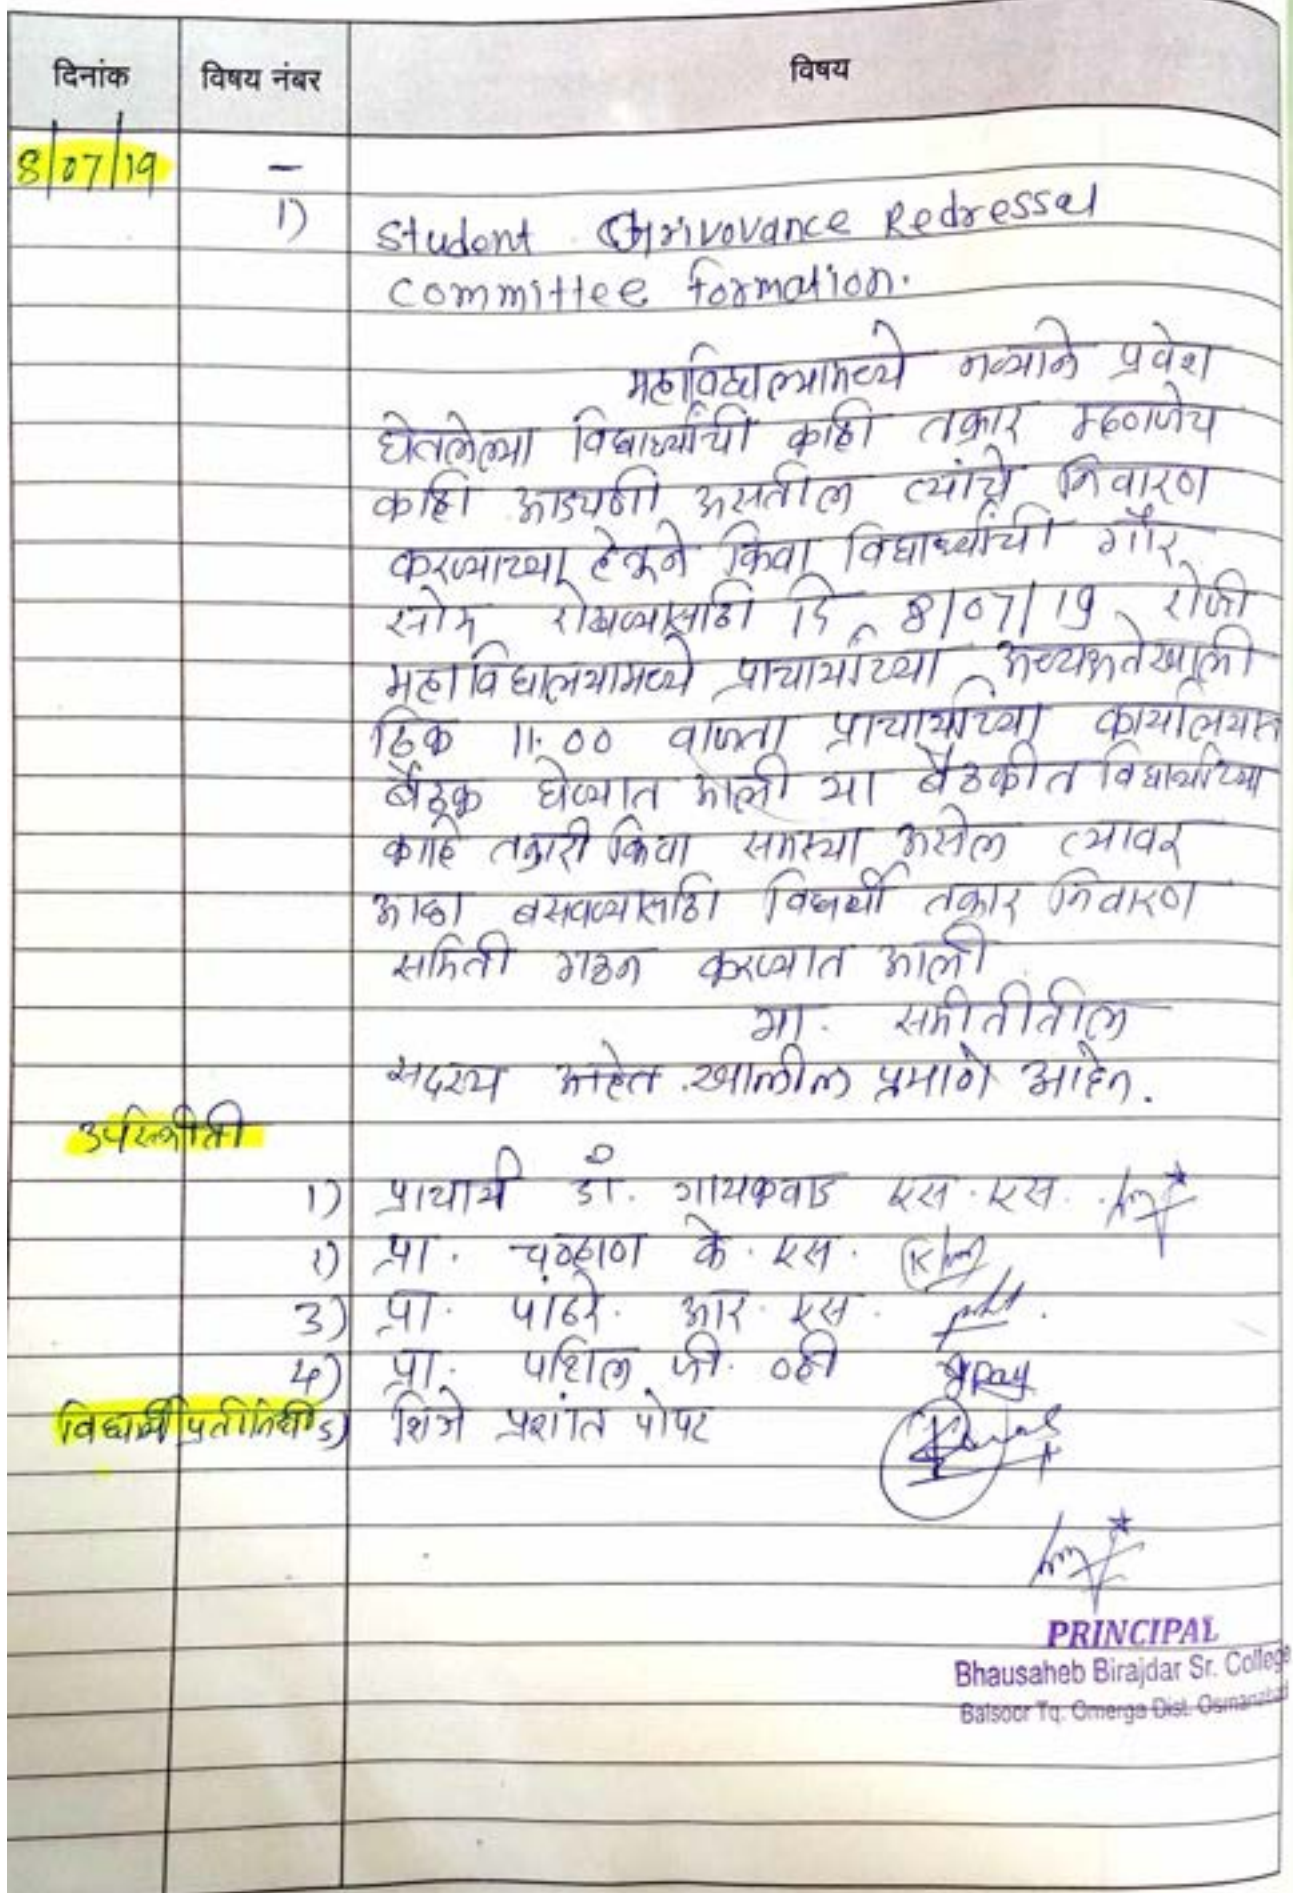 दिनांक विषय नंबर विषय
8/07/19 –
1) Student Grivovance Redressal
Committee formation.
महाविद्यालयामध्ये नव्याने प्रवेश
घेतलेल्या विद्यार्थ्यांची काही तक्रार म्हणजेच
काही अडचणी असतील त्यांचे निवारण
करण्याच्या हेतूने किंवा विद्यार्थ्यांची गैर
सोय रोखण्यासाठी दि 8/07/19 रोजी
महाविद्यालयामध्ये प्राचार्यांच्या अध्यक्षतेखाली
ठिक 11.00 वाजता प्राचार्यांच्या कार्यालयात
बैठक घेण्यात आली या बैठकीत विद्यार्थ्यांच्या
काहि तक्रारी किंवा समस्या असेल त्यावर
आळा बसवण्यासाठी विद्यार्थी तक्रार निवारण
समिती गठन करण्यात आली
या. समीतीतील
सदस्य आहेत खालील प्रमाणे आहेत.
उपस्थीती
1) प्राचार्य डॉ. गायकवाड एस. एस.
प्रा. चव्हाण के. एस.
3) प्रा. पांढरे. आर. एस.
4) प्रा. पाटील जी. व्ही
विद्यार्थी प्रतीनिधी 5) शिंजे प्रशांत पोपट
PRINCIPAL
Bhausaheb Birajdar Sr. College
Balsoor Tq. Omerga Dist. Osmanabad